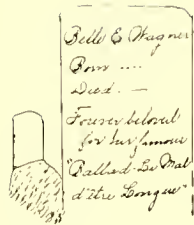 Belle E Wagner
Born ....
Died. —
Forever beloved
for her famous
"Ballad - Le Mal
d'être Longue"